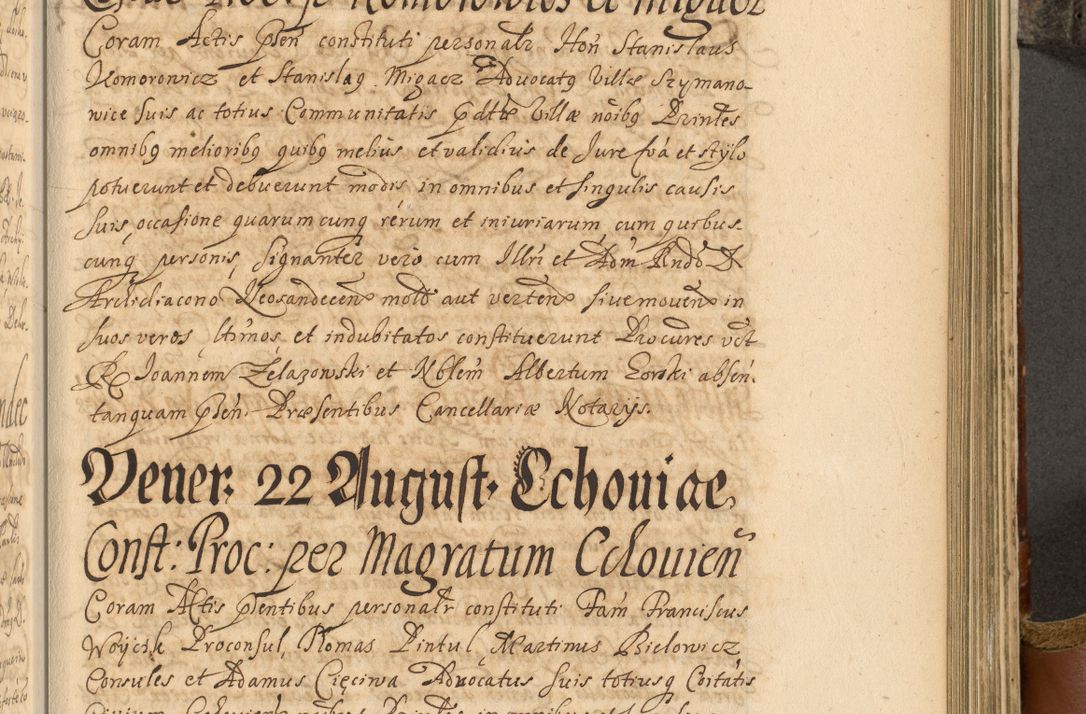 Coram Actis pñen constituti personalr Hon Stanislaus
Komorowicz et Stanislaq Migacz Advocatq Villæ Szymano-
wice suis ac totius Communitatis pdtæ Villæ nõibq Printes
omnibq melioribq quibq melius et validius de Jure foá et stylo
potuerunt et debuerunt modis in omnibus et singulis causis
suis, occasione quarumcunq rérum et iniuriarum cum quibus
cunq personis, signanter vero cum Illri et Adm Rndo D
Archidiacono Neosandecen moto aut verten sive moven in
suos veros, ltimos et indubitatos constituerunt Procures včt
R Joannem Zelazowski et Nblem Albertum Gorski absen.
tanquam pñen. Præsentibus Cancellariæ Notarijs.
Vener: 22 August. Cchoviae
Const: Proc: per Magratum Cclovien
Coram Actis pñentibus personalr constituti Fam Franciscus
Woycik Proconsul, Thomas Pintul, Martinus Bielowicz
Consules et Adamus Cięciwa Advocatus suis totiusq Coitatis